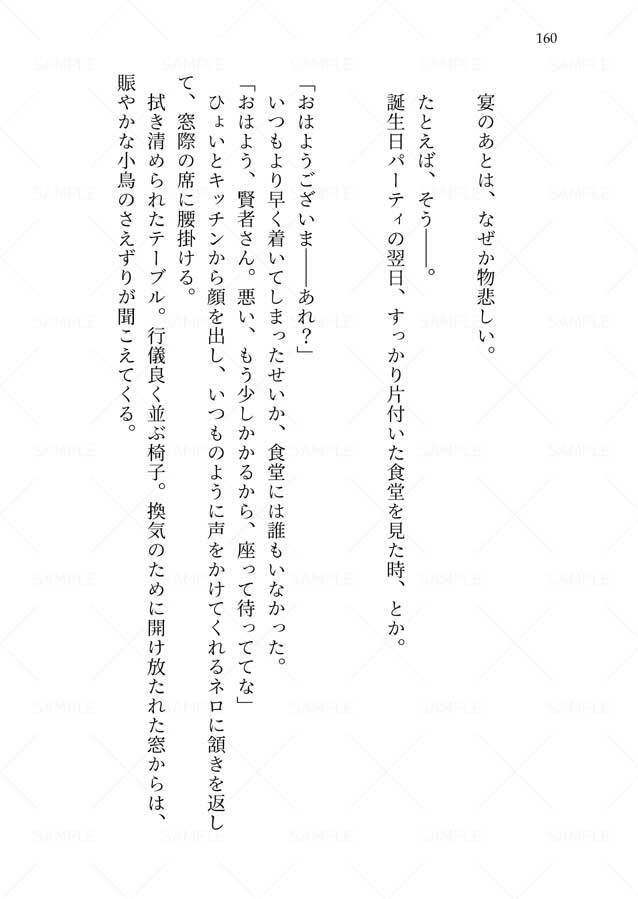 160
宴のあとは、なぜか物悲しい。
たとえば、そう――。
誕生日パーティの翌日、すっかり片付いた食堂を見た時、とか。
「おはようございま――あれ？」
いつもより早く着いてしまったせいか、食堂には誰もいなかった。
「おはよう、賢者さん。悪い、もう少しかかるから、座って待っててな」
ひょいとキッチンから顔を出し、いつものように声をかけてくれるネロに頷きを返し
て、窓際の席に腰掛ける。
拭き清められたテーブル。行儀良く並ぶ椅子。換気のために開け放たれた窓からは、
賑やかな小鳥のさえずりが聞こえてくる。
SAMPLE